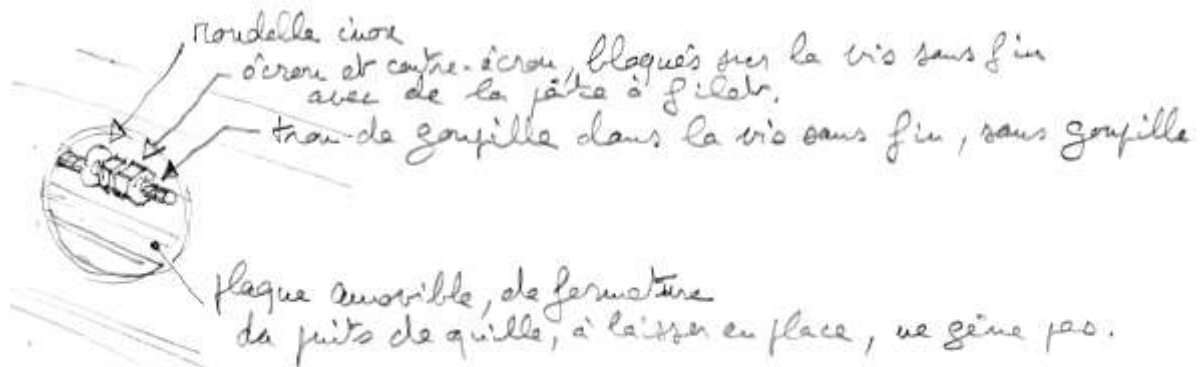 rondelle inox
écrou et contre-écrou, bloqués sur la vis sans fin
avec de la pâte à filets.
trou de goupille dans la vis sans fin, sans goupille
plaque amovible, de fermeture
du puits de quille, à laisser en place, ne gêne pas.